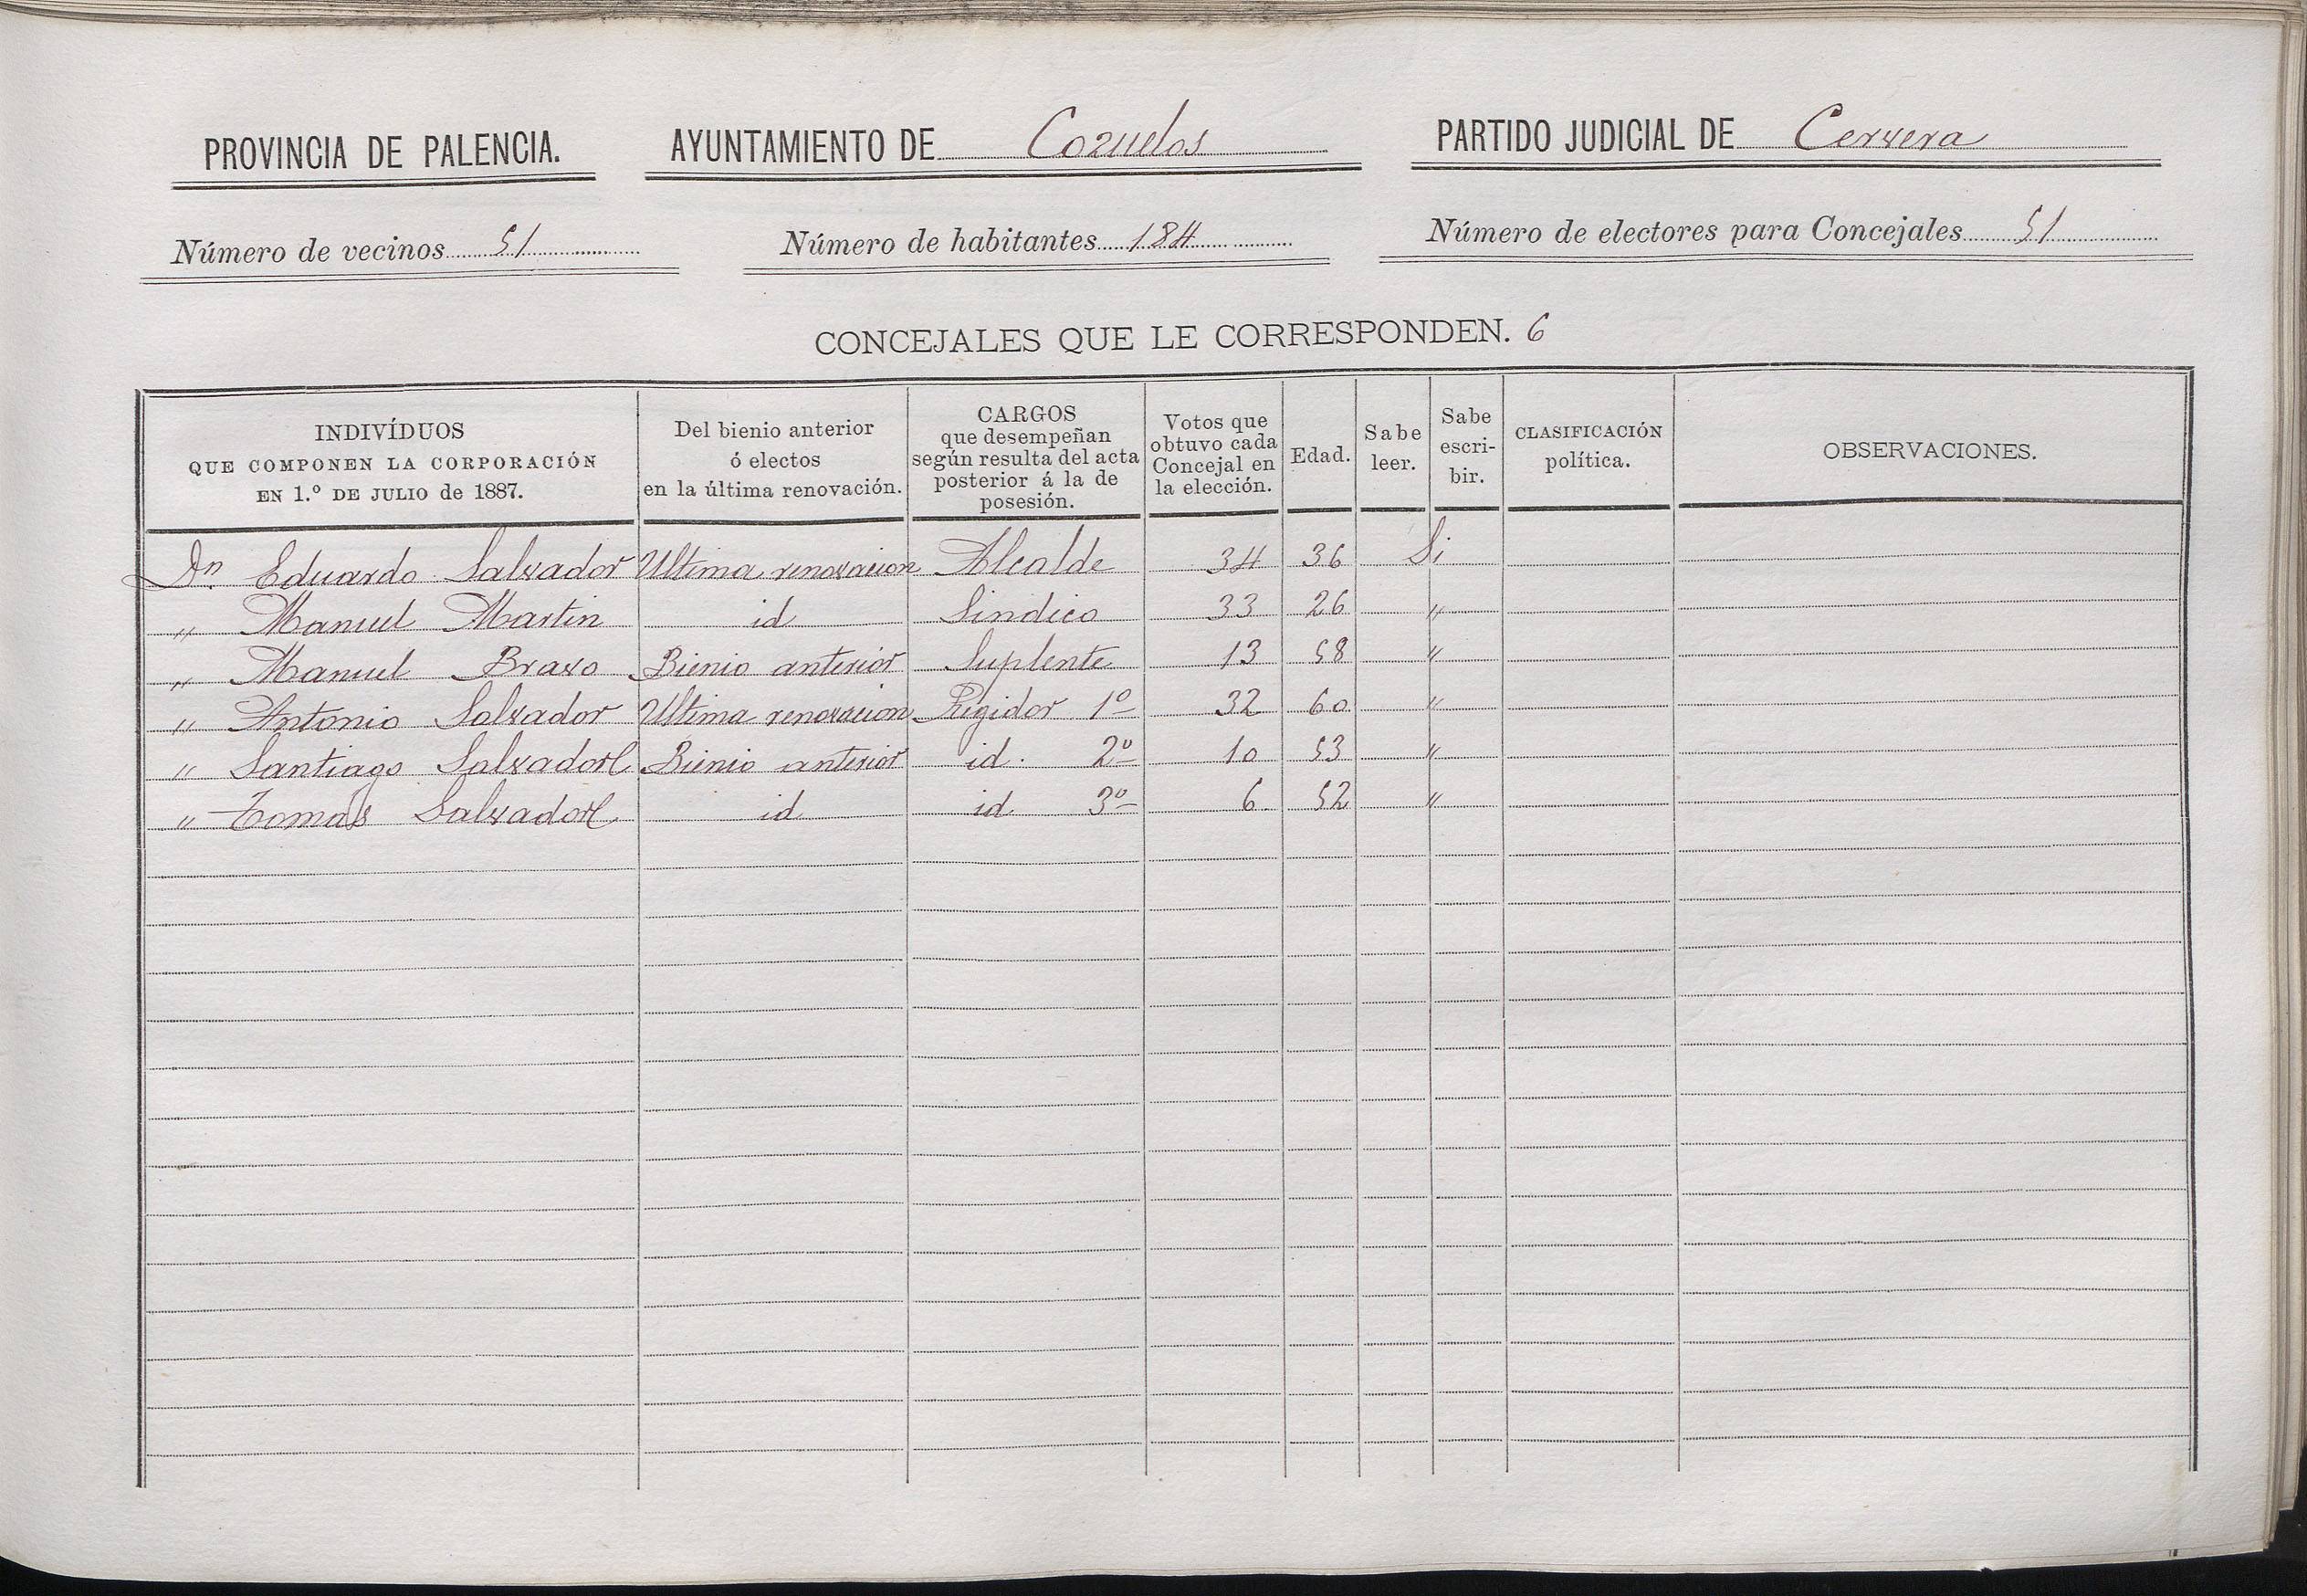 PROVINCIA DE PALENCIA. AYUNTAMIENTO DE Cozuelos PARTIDO JUDICIAL DE Cervera
Número de vecinos 51 Número de habitantes 184 Número de electores para Concejales 51
CONCEJALES QUE LE CORRESPONDEN. 6
INDIVÍDUOS
QUE COMPONEN LA CORPORACIÓN
EN 1.º DE JULIO de 1887.
Del bienio anterior
ó electos
en la última renovación.
CARGOS
que desempeñan
según resulta del acta
posterior á la de
posesión.
Votos que
obtuvo cada
Concejal en
la elección.
Edad.
Sabe
leer.
Sabe
escri-
bir.
CLASIFICACIÓN
política.
OBSERVACIONES.
Dn Eduardo Salvador Ultima renovacion Alcalde 34 36 Si
" Manuel Martin id Sindico 33 26 "
" Manuel Bravo Bienio anterior Suplente 13 58 "
" Antonio Salvador Ultima renovacion Regidor 1º 32 60 "
" Santiago Salvador Bienio anterior id. 2º 10 53 "
" Tomás Salvador id id 3º 6 52 "